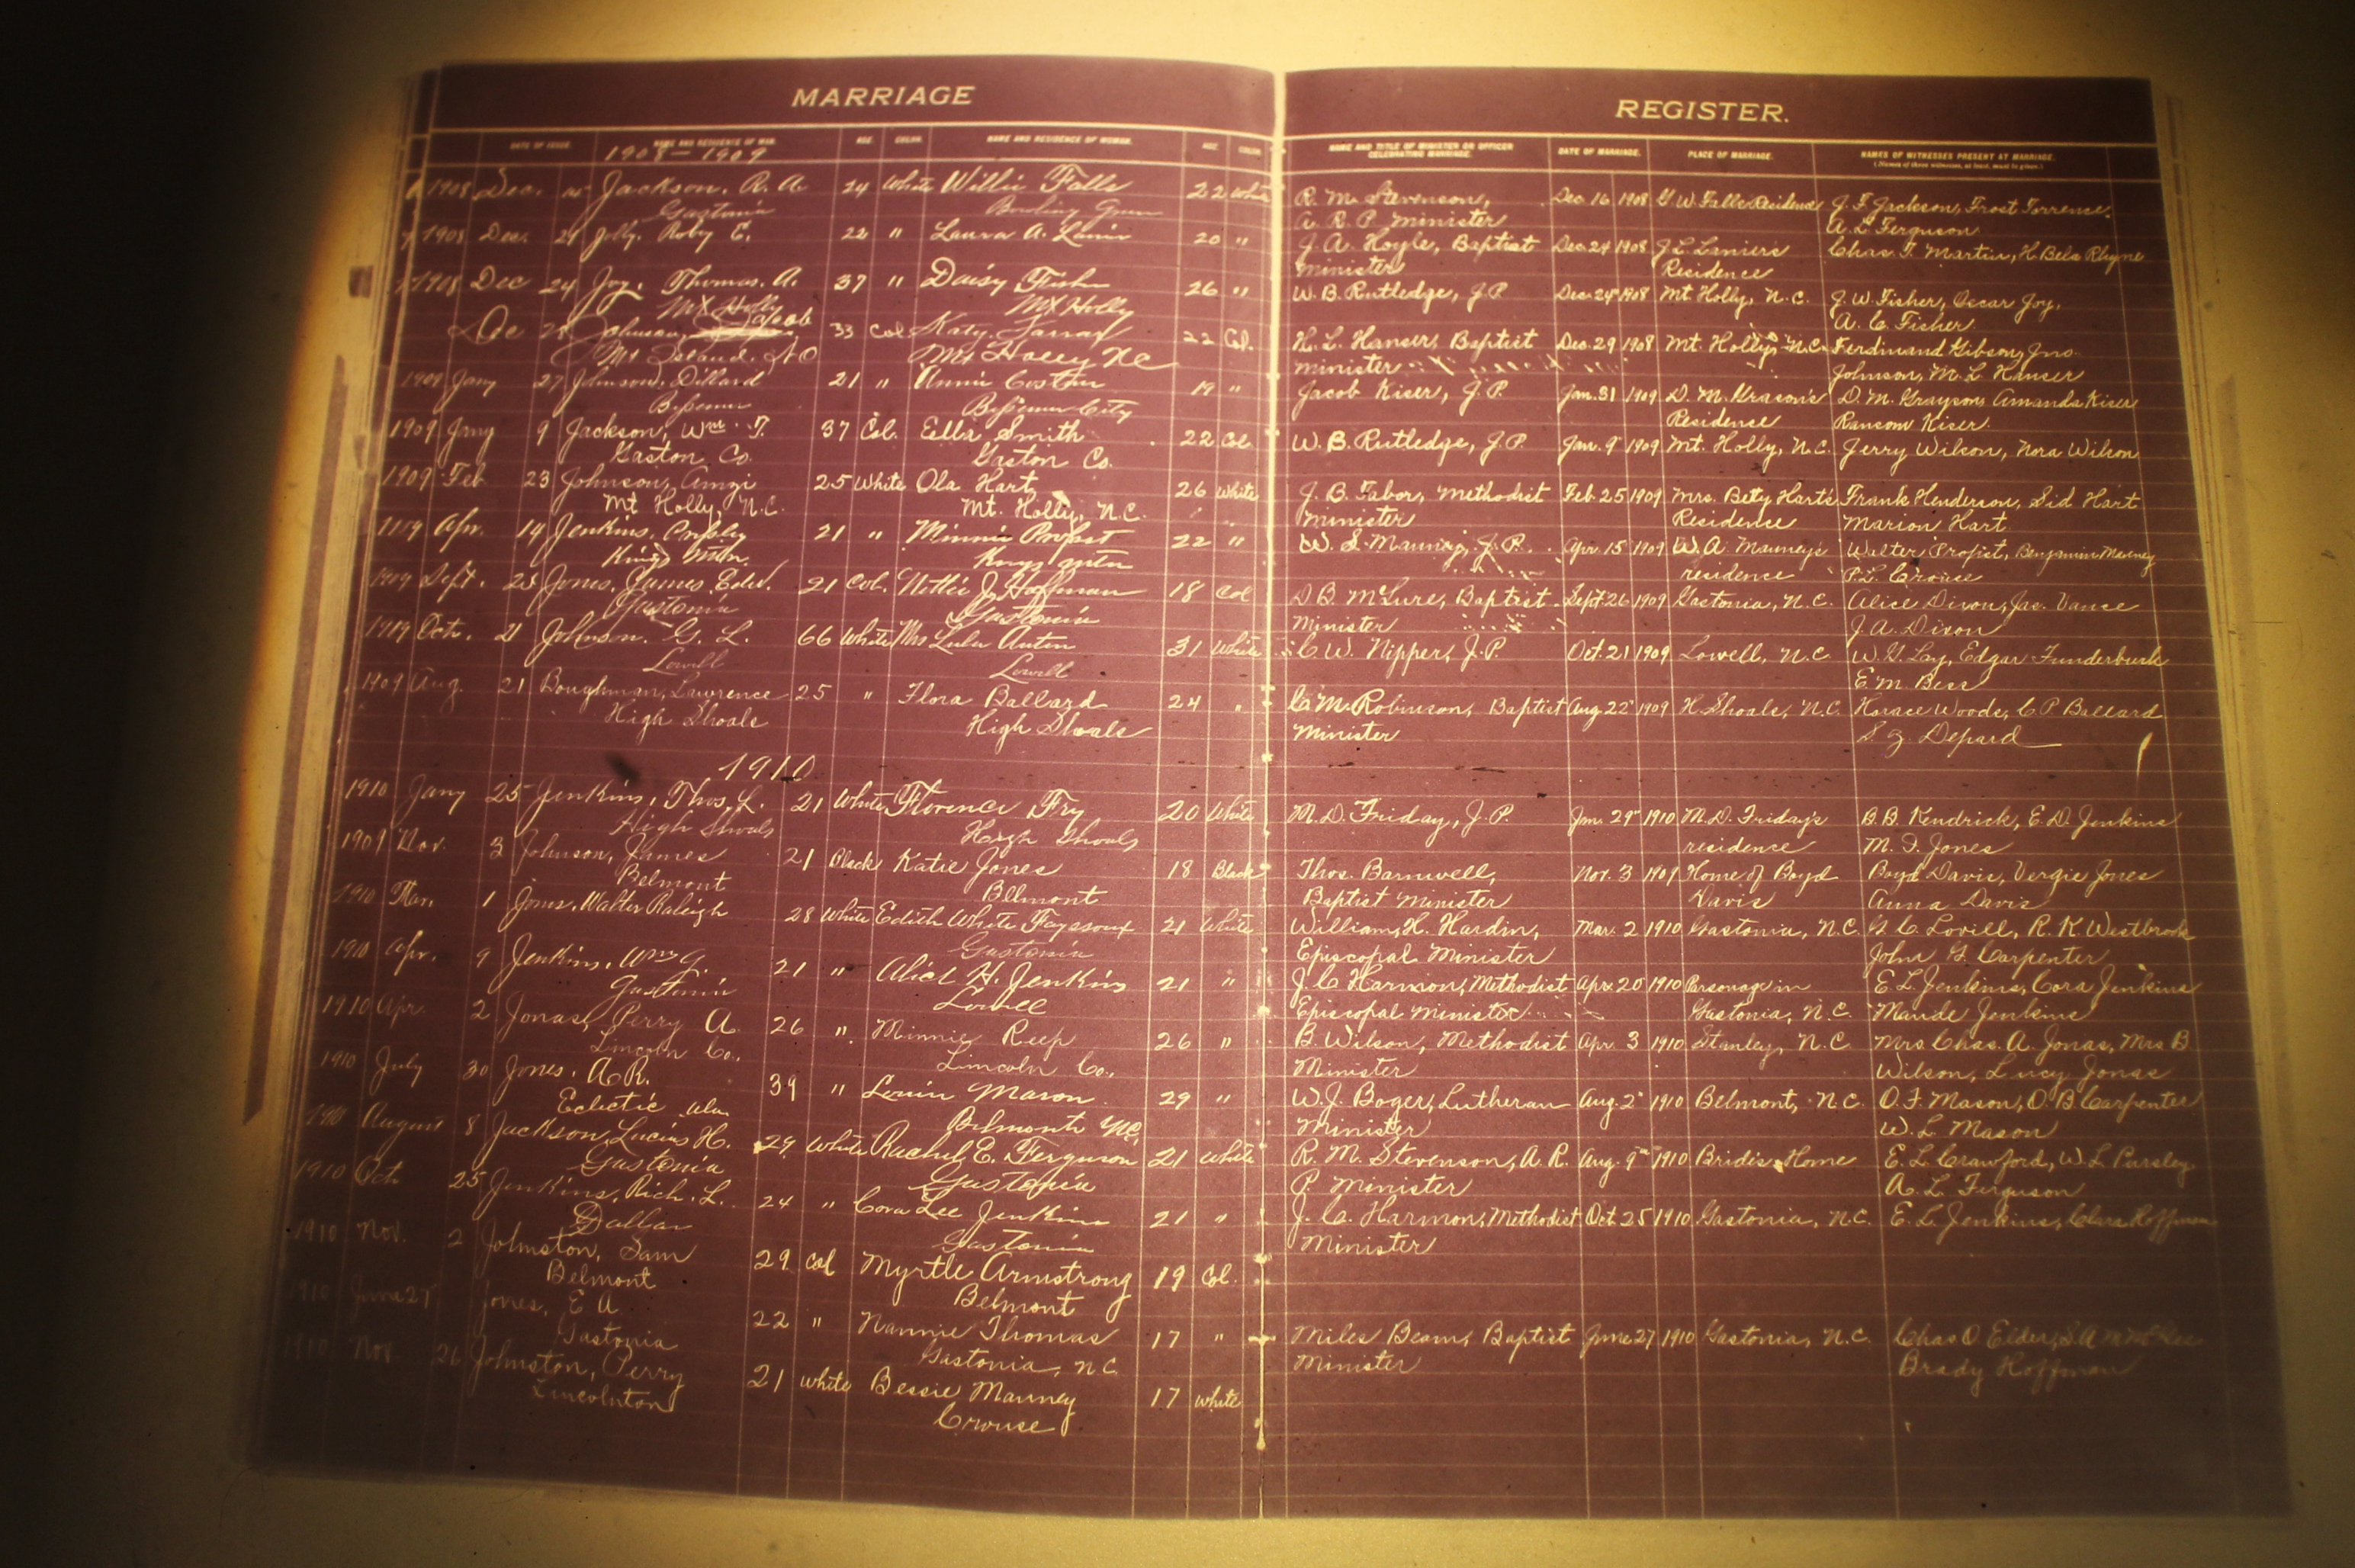 MARRIAGE REGISTER.
DATE OF ISSUE. NAME AND RESIDENCE OF MAN. AGE. COLOR. NAME AND RESIDENCE OF WOMAN. AGE. COLOR. NAME AND TITLE OF MINISTER OR OFFICER CELEBRATING MARRIAGE. DATE OF MARRIAGE. PLACE OF MARRIAGE. NAMES OF WITNESSES PRESENT AT MARRIAGE.
(Names of three witnesses, at least, must be given.)
1908-1909
1908 Dec. Jackson, R. A. 24 White Willie Falls 22 White R. M. Stevenson, Dec. 16 1908 G. W. Falls Residence J. F. Jackson, Frost Torrence,
Gastonia Bowling Green A. R. P. Minister A. L. Ferguson
1908 Dec. 24 Jolly, Roby E. 22 " Laura A. 20 " J. A. Hoyle, Baptist Dec. 24 1908 J. L. Lanier's Chas. F. Martin, H. Bela Rhyne
Minister Residence
1908 Dec 24 Joy, Thomas. A. 37 " Daisy Fisher 26 " W. B. Rutledge, J. P. Dec. 24 1908 Mt Holly, N. C. J. W. Fisher, Oscar Joy,
Mt Holly Mt Holly A. C. Fisher
Dec 28 Johnson, Jacob 33 Col Katy 22 Col. H. L. Hanser, Baptist Dec. 29 1908 Mt. Holly, N.C. Ferdinand Gibson, Jno.
Mt Island. N C Mt Holly NC Minister Johnson, M. L. Hanser
1909 Jany 27 Johnson, Dillard 21 " Annie Costner 19 " Jacob Kiser, J. P. Jan. 31 1909 D. M. Grason's D. M. Grayson, Amanda Kiser
Bessemer Bessemer City Residence Ransom Kiser.
1909 Jany 9 Jackson, Wm. T. 37 Col. Ella Smith 22 Col W. B. Rutledge, J. P. Jan. 9 1909 Mt. Holly, N. C. Jerry Wilson, Nora Wilson
Gaston Co. Gaston Co.
1909 Feb 23 Johnson, Amzi 25 White Ola Hart 26 White J. B. Tabor, Methodist Feb. 25 1909 Mrs. Bety Hart's Frank Henderson, Sid Hart
Mt Holly, N.C. Mt. Holly, N. C. Minister Residence Marion Hart
Apr. 14 Jenkins, 21 " Minnie Propst 22 " W. S. Mauney, J. P. Apr. 15 1909 W. A. Mauney's Walter Propist, Benjamin Mauney
Kings Mtn. Kings Mtn residence P. L. Crouse
1909 Sept. 25 Jones, James Edw. 21 Col. Nettie J. Hoffman 18 Col D B. McLure, Baptist Sept. 26 1909 Gastonia, N. C. Alice Dixon, Jas. Vance
Gastonia Gastonia Minister J. A. Dixon
1909 Oct. 21 Johnson. G. L. 66 White Mrs Lula 31 White C. W. Nipper, J. P. Oct. 21 1909 Lowell, N. C W. G. Lay, Edgar Funderburk
Lowell Lowell E. M. Bess
1909 Aug. 21 Boughman, Lawrence 25 " Flora Ballard 24 " C. M. Robinson, Baptist Aug. 22 1909 H. Shoals, N. C. Horace Woods, C. P. Ballard
High Shoals High Shoals Minister S. Z. Depard
1910
1910 Jany 25 Jenkins, Thos. L. 21 White Florence Fry 20 White M. D. Friday, J. P. Jan. 29 1910 M. D. Friday's B. B. Kendrick, E. D. Jenkins
High Shoals High Shoals residence M. F. Jones
1909 Nov. 3 Johnson, James 21 Black Katie Jones 18 Black Thos. Barnwell, Nov. 3 1909 Home of Boyd Boyd Davis, Vergie Jones
Belmont Belmont Baptist Minister Davis Anna Davis
1910 Mar. 1 Jones, Walter Raleigh 28 White Edith White Fayssoux 21 White William H. Hardin, Mar. 2 1910 Gastonia, N. C. G. C. Lovill, R. K. Westbrook
Gastonia Episcopal Minister John G. Carpenter
1910 Apr. 9 Jenkins, Wm G. 21 " Alice H. Jenkins 21 " J. C. Harmon, Methodist Apr. 20 1910 Parsonage in E. L. Jenkins, Cora Jenkins
Gastonia Lowell Episcopal Minister Gastonia, N. C. Maude Jenkins
1910 Apr. 2 Jonas, Perry A. 26 " Minnie Reep 26 " B. Wilson, Methodist Apr. 3 1910 Stanley, N. C Mrs. Chas. A. Jonas, Mrs B
Lincoln Co. Lincoln Co. Minister Wilson, Lucy Jonas
1910 July 30 Jones, A. R. 39 " Mason 29 " W. J. Boger, Lutheran Aug. 2 1910 Belmont, N. C. O. F. Mason, O. B. Carpenter
Eclectic Ala Belmont NC Minister W. L. Mason
1910 August 8 Jackson, Lucius H. 29 White Rachel E. Ferguson 21 White R. M. Stevenson, A. R. Aug. 9 1910 Bride's Home E. L. Crawford, W. L. Pursley
Gastonia Gastonia P. Minister A. L. Ferguson
1910 Oct. 25 Jenkins, Rich. L. 24 " Cora Lee Jenkins 21 " J. C. Harmon, Methodist Oct. 25 1910 Gastonia, N. C. E. L. Jenkins, Clara Hoffman
Dallas Gastonia Minister
1910 Nov. 2 Johnston, Sam 29 Col Myrtle Armstrong 19 Col.
Belmont Belmont
1910 June 27 Jones, E A 22 " Nannie Thomas 17 " Miles Beam, Baptist June 27 1910 Gastonia, N. C. Chas O Elder, S. A.
Gastonia Gastonia, N C Minister Brady Hoffman
1910 Nov. 26 Johnston, Perry 21 White Bessie Mauney 17 White
Lincolnton Crouse